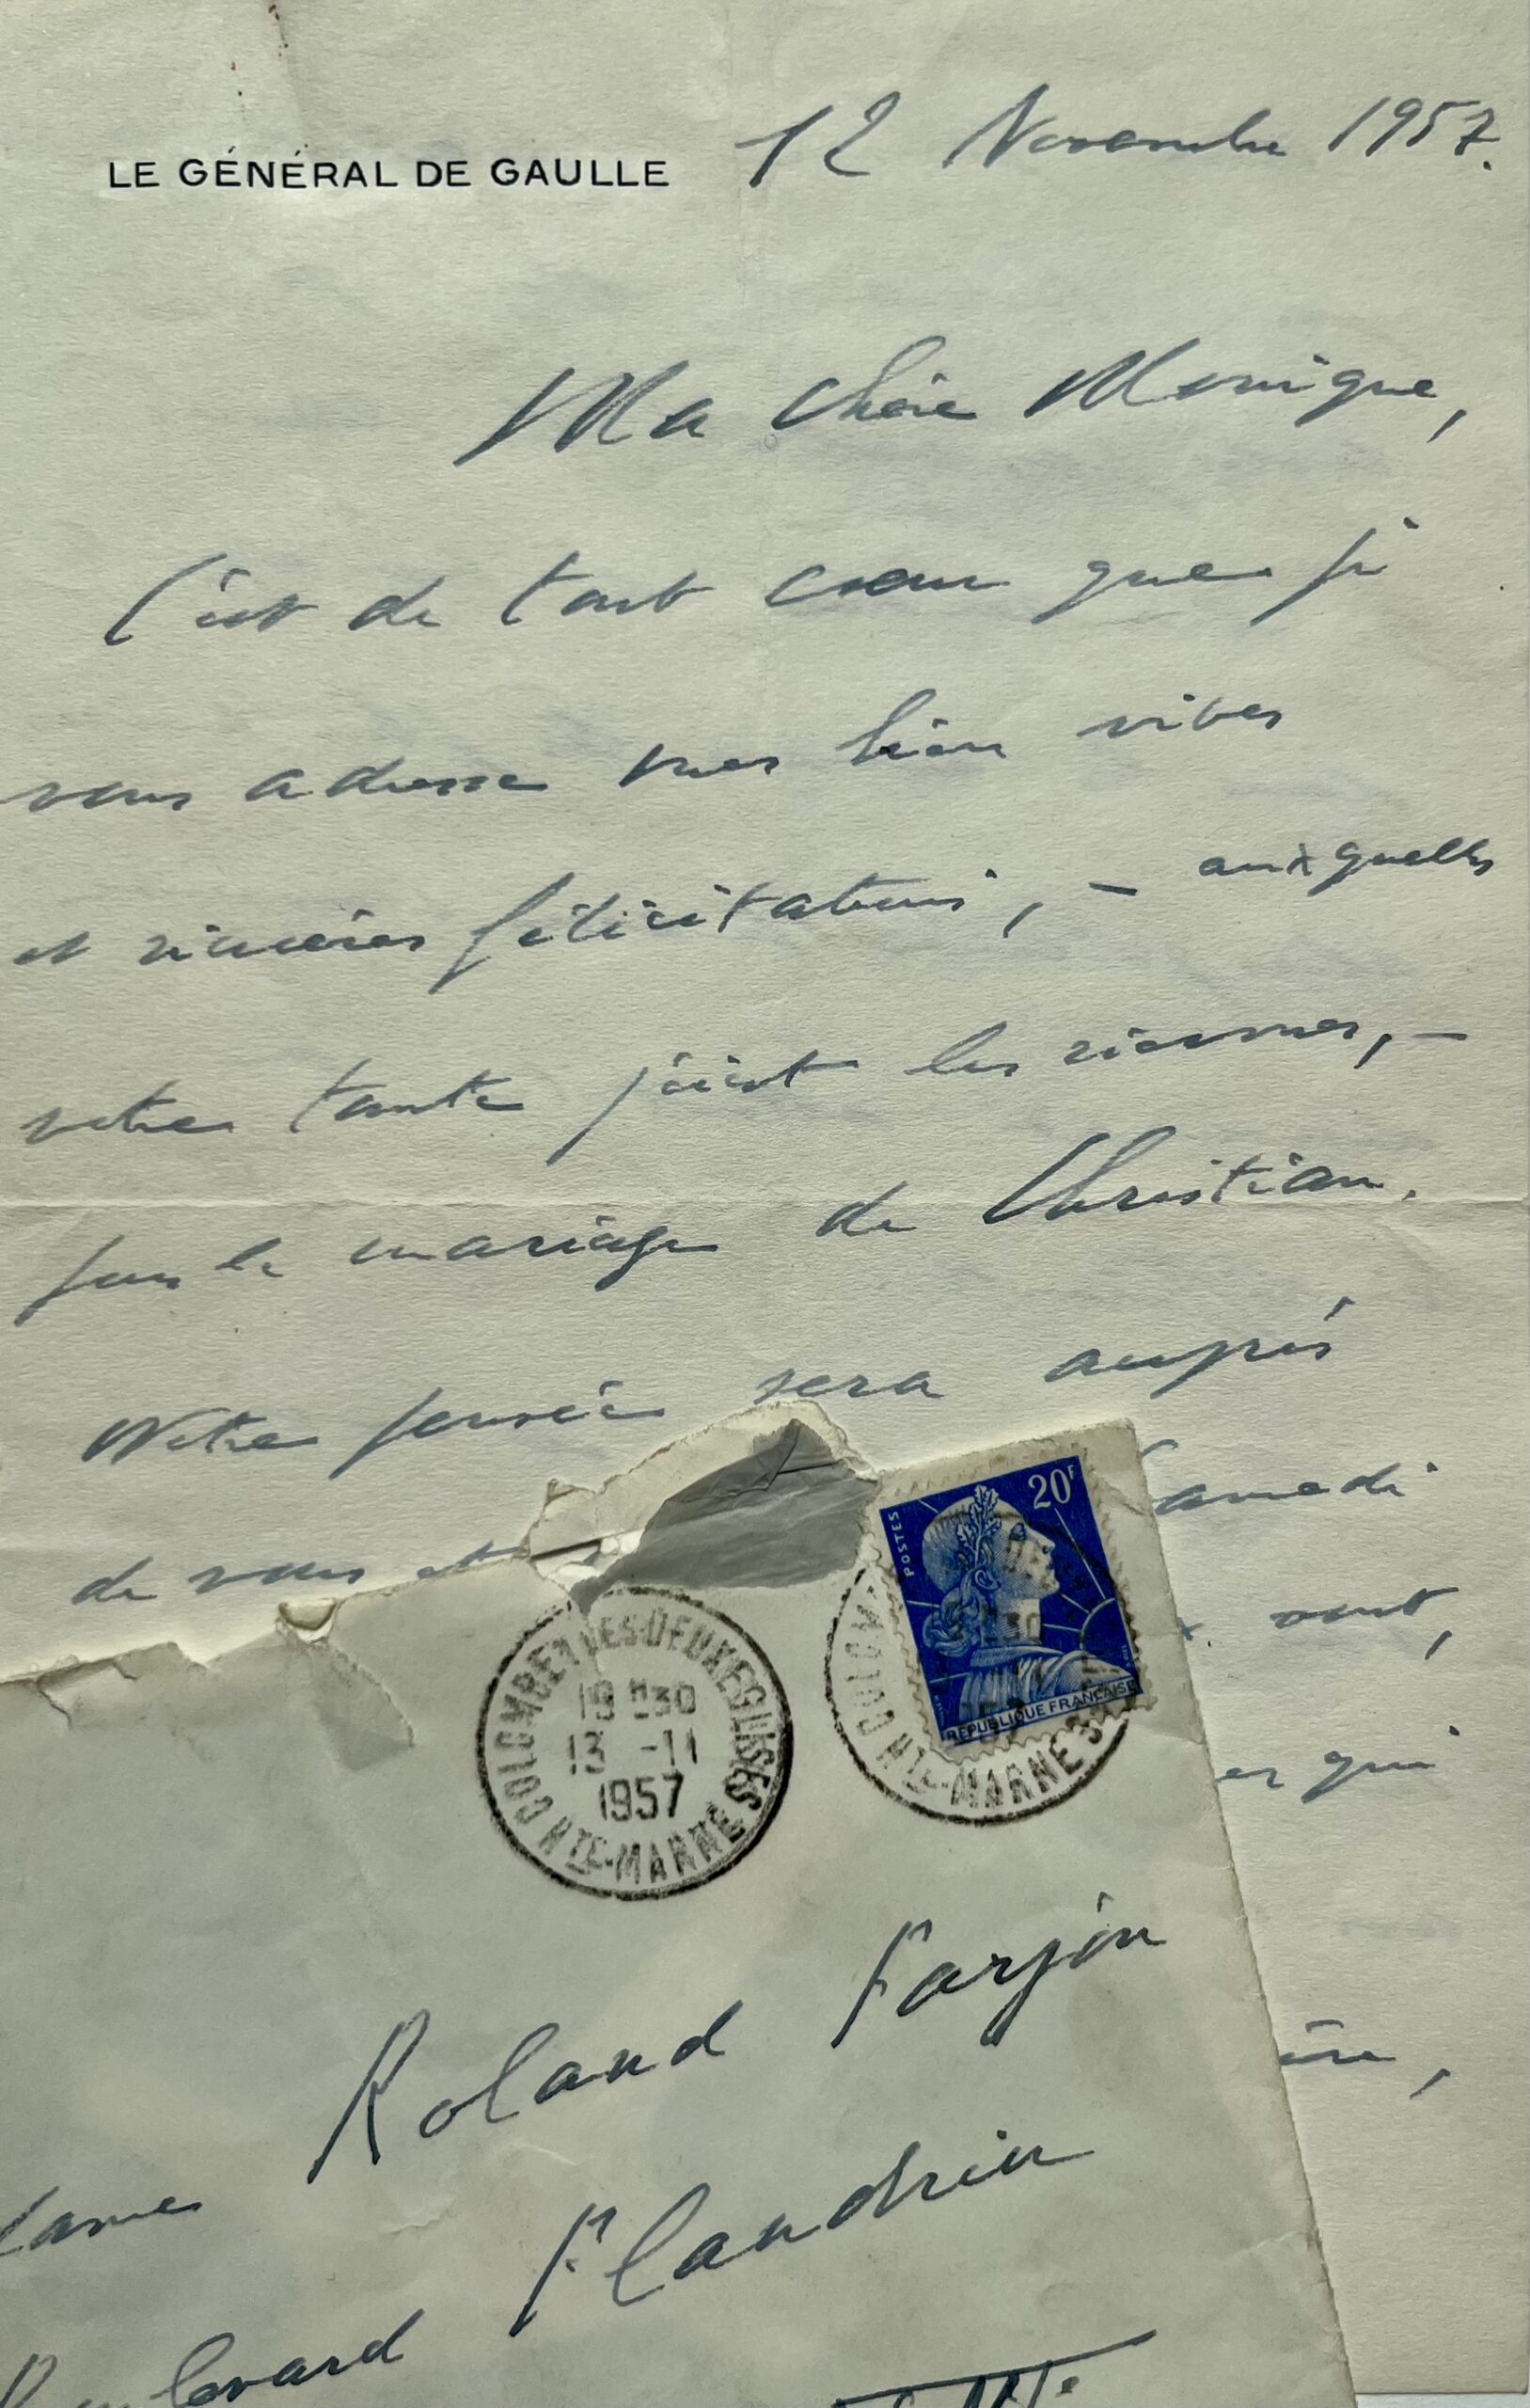 LE GÉNÉRAL DE GAULLE
12 Novembre 1957.
Ma chère Monique,
C'est de tout coeur que je
vous adresse mes bien vives
et sincères félicitations, – auxquelles
votre tante joint les siennes, –
pour le mariage de Christian.
Notre pensée sera auprès
de vous et
Samedi
vont,
qui
20F
POSTES
REPUBLIQUE FRANÇAISE
COLOMBEY LES-DEUX EGLISES
18 H30
13 -11
1957
HTE-MARNE
COLOM
HTE-MARNE
Roland Farjon
Boulevard Flandrin